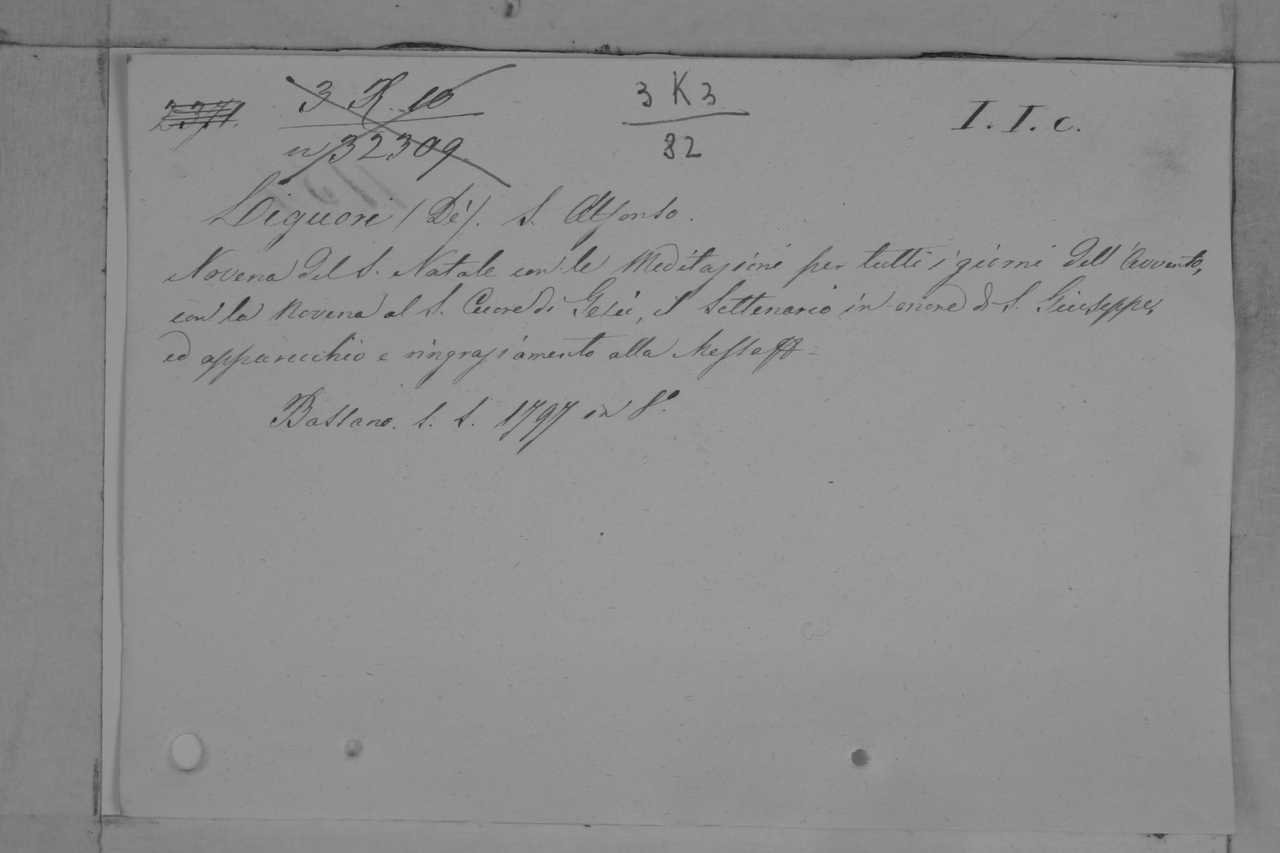 3 K. 10 3 K 3 I. I. c.
n 32309 82
Liguori (De'). S. Alfonso.
Novena del S. Natale con le Meditazioni per tutti i giorni dell'Avvento,
con la Novena al S. Cuore di Gesù, il Settenario in onore di S. Giuseppe,
ed apparecchio e ringraziamento alla Messa
Bassano. S. S. 1797 in 8°.